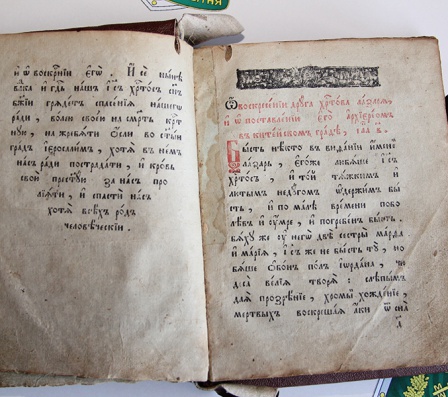 и ѿ воскрⷭ҇нїи єгѡ̀. И сѐ нынѣ
вⷧ҇ка и гдⷭ҇ь нашъ і҆с҃ъ хрⷭ҇тосъ сн҃ъ
бж҃їи грѧдетъ спасенїѧ нашегѡ
ради, волею своею на смерть крⷭ҇т
ную, на жребѧти ѻсли во ст҃ыи
градъ їєрусалимъ, хотѧ в нѐм
насъ ради пострадати, и кровь
свою за насъ про
лїѧти, и спасти насъ
хотѧ всѣхъ родъ
человѣческїи.
Ѽ воскресенїи друга хрⷭ҇това лазарѧ,
и ѿ поставленїи єгѡ̀ архїєрⷪ҇мъ
в китейскомъ градѣ, глⷡ҇а в҃.
Бысть нѣкто в виданїи именемъ
лазарь, єгоже любѧше і҆с҃ъ
хрⷭ҇тосъ, и той тѧжкимъ и
лютымъ недугомъ ѡдержимъ бы
сть, и по малѣ времени побо
лѣвъ и умре, и погребенъ бысть.
бѧху же у негѡ двѣ сестры марѳа
и марїѧ, і҆с҃ъ же не бысть ту̀, но
бѧше ѻбонъ полъ їордана, чю
деса велїѧ творѧ: слѣпымъ
даѧ прозрѣнїе, хромымъ хожденїе,
мертвыхъ воскрешаѧ ꙗ҆ки ѿ сна